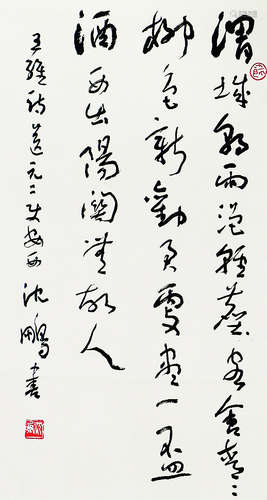 渭城朝雨浥輕塵客舍青〻
柳色新勸君更盡一盃
酒西出陽關無故人
王維詩送元二使安西 沈鵬書